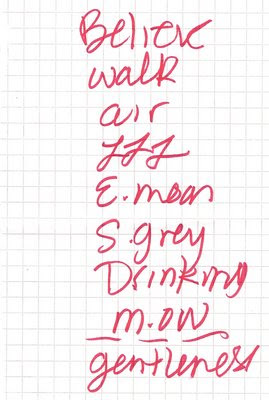 Believe
walk
air
E. moon
S. grey
Drinking
m. ow
gentleness